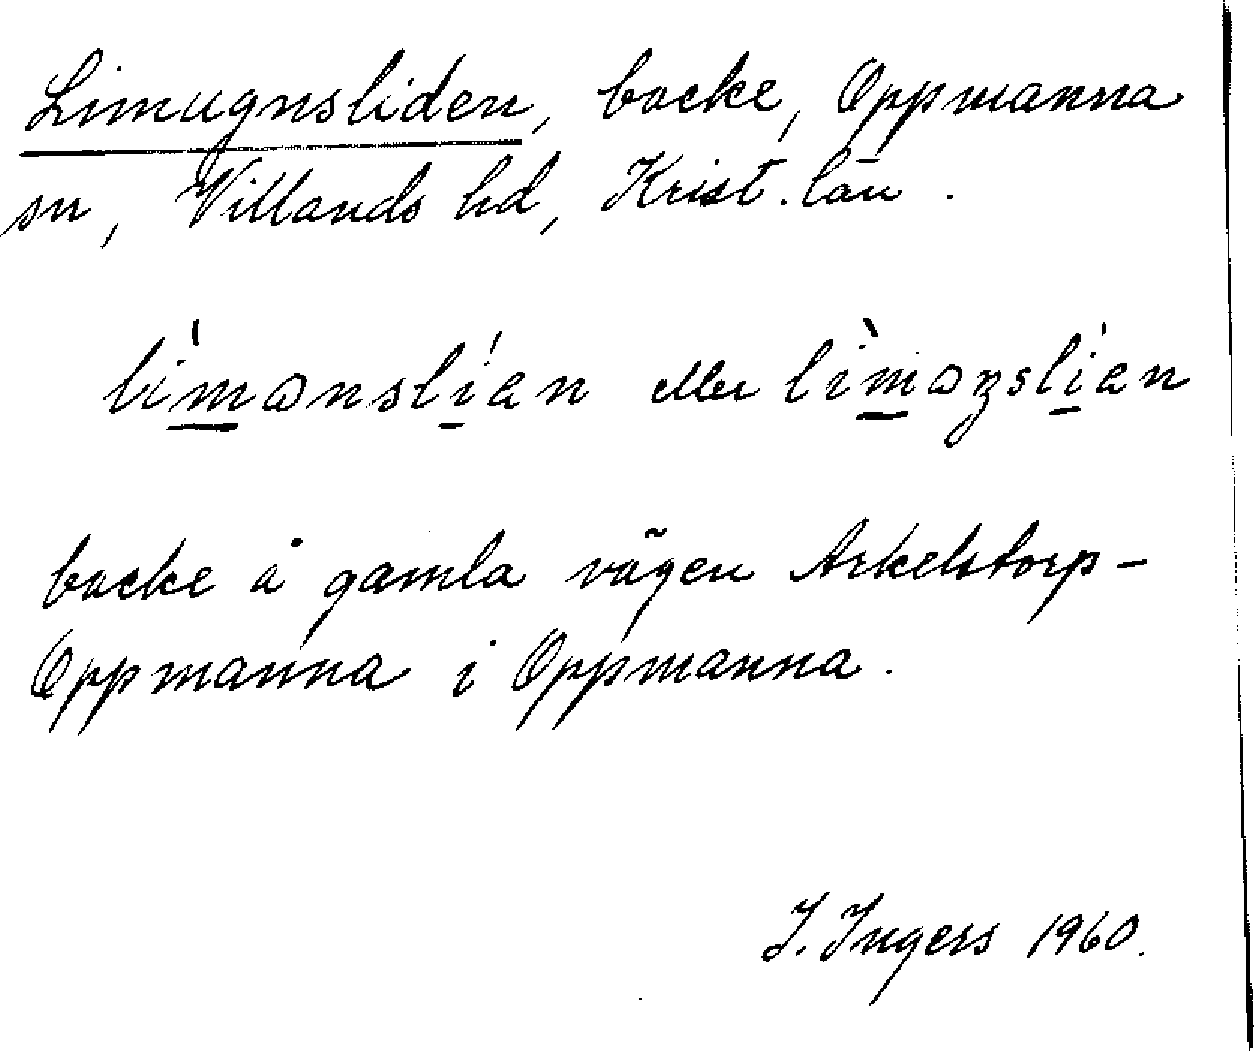 Limugnsliden, backe, Oppmanna
sn, Villands hd, Krist. län.
lìmɷnslíen eller lìmɷŋslíen
backe å gamla vägen Arkelstorp-
Oppmanna i Oppmanna.
I. Ingers 1960.